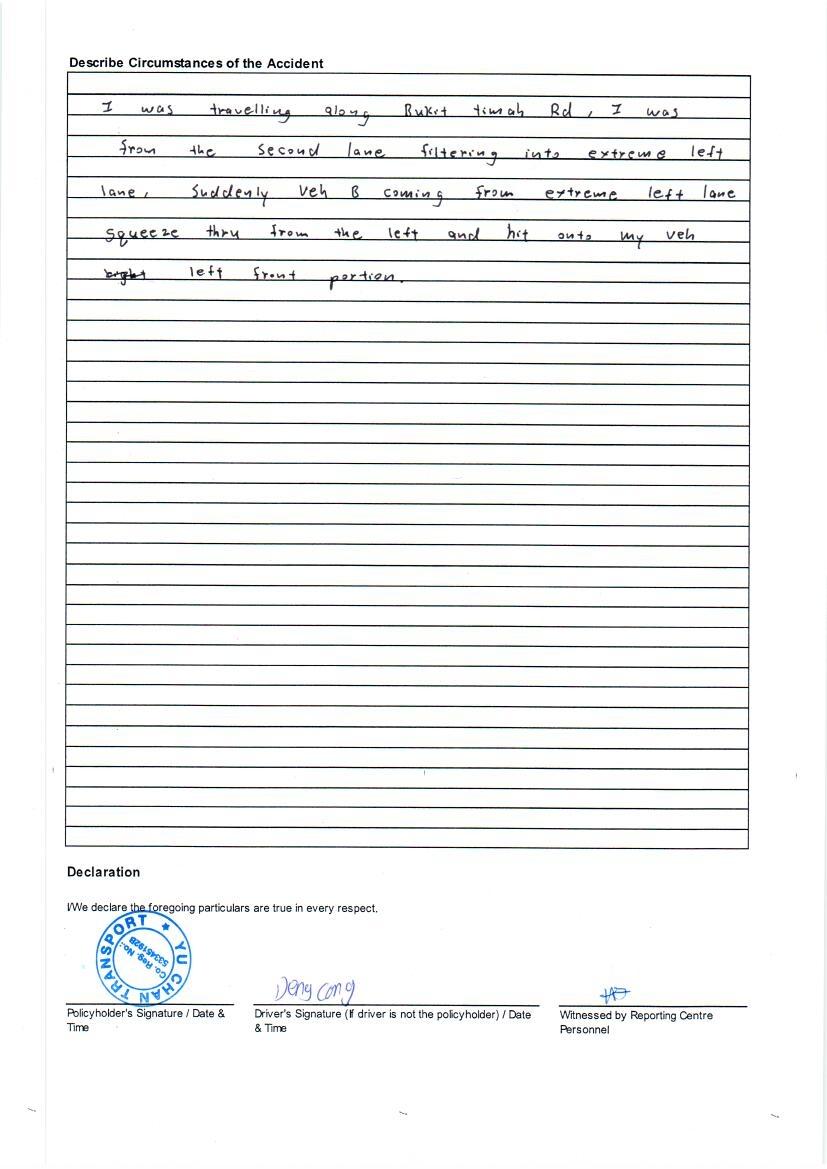 Describe Circumstances of the Accident
I was travelling along Bukit timah Rd, I was
from the second lane filtering into extreme left
lane, Suddenly Veh B coming from extreme left lane
squeeze thru from the left and hit onto my veh
left front portion.
Declaration
I/We declare the foregoing particulars are true in every respect.
YU CHAN TRANSPORT
Co. Reg. No.:
53345192B
Deng Cong
Policyholder's Signature / Date &
Time
Driver's Signature (If driver is not the policyholder) / Date
& Time
Witnessed by Reporting Centre
Personnel